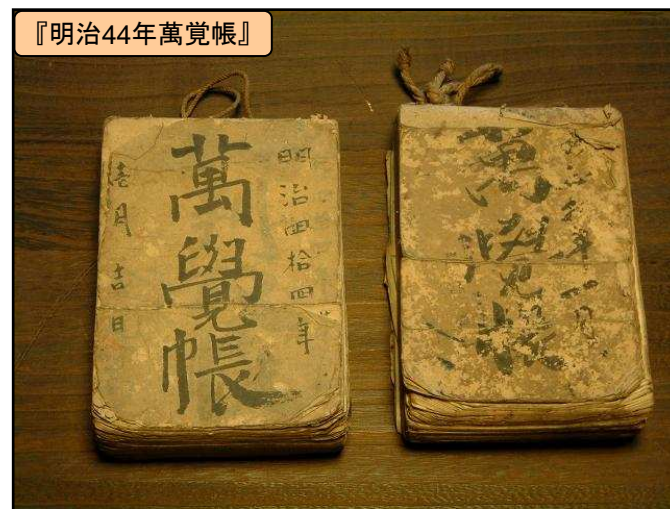 『明治44年萬覚帳』
明治四拾四年
萬覺帳
壱月吉日
年一月
萬覺帳